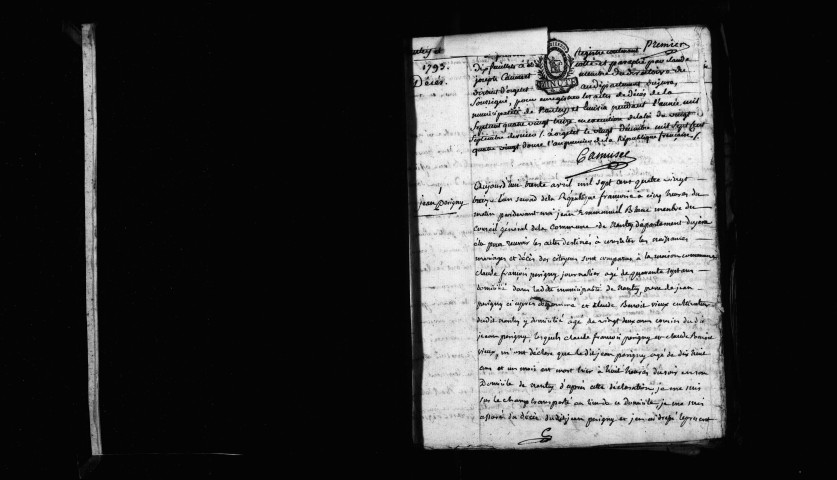 1793.
Décès.
Premier
Registre contenant
dix feuillets
joseph Camuset
district d'orgelet au département du jura,
Soussigné, pour enregistrer les actes de décès de la
municipalité de pendant l'année mil
Sept cent quatre vingt treize en exécution de la loi du vingt
Septembre dernier, à orgelet le vingt Décembre mil Sept Cent
quatre vingt douze l'an premier de la République françoise /.
Camuset
1
jean perigny
Aujourd'hui trente avril mil sept cent quatre vingt
treize l'an second de la République françoise à cinq heures du
matin pardevant moi jean Emmanuel membre du
Conseil général de la Commune de département du jura
élu pour recevoir les actes destinés à constater les naissances
mariages et décès des citoyens sont comparus à la maison commune
claude françois perigny journalier agé de quarante sept ans
domicilié dans ladite municipalité de père de jean
perigny ci après dénommé et claude Benoit vieux cultivateur
dudit y domicilié agé de vingt deux ans cousin dudit
jean perigny, lesquels claude françois perigny et claude Benoit
vieux, m'ont déclaré que ledit jean perigny agé de dix huit
ans et un mois est mort hier à huit heures du soir en son
Domicile de d'après cette déclaration, je me suis
sur le champ transporté au lieu de ce Domicile, je me suis
assuré du décès dudit jean perigny et j'en ai dressé le présent